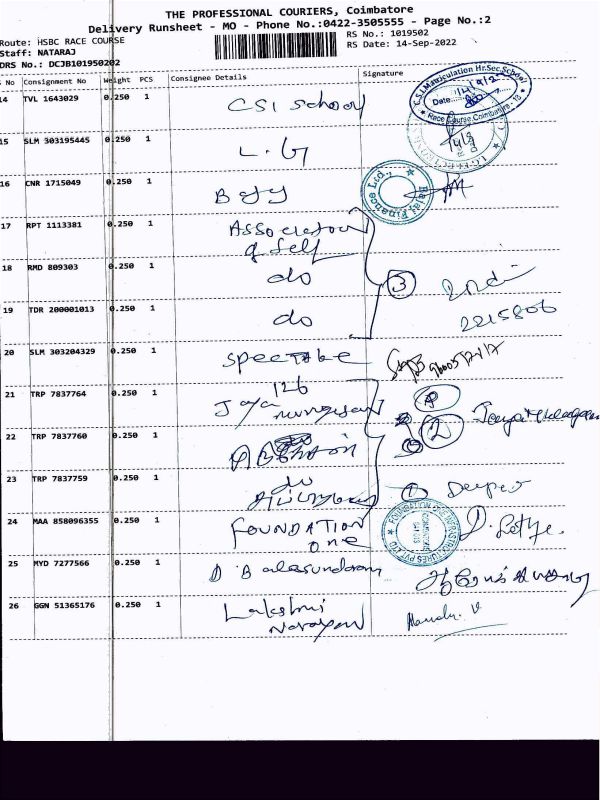 THE PROFESSIONAL COURIERS, Coimbatore
Delivery Runsheet - MO - Phone No.:0422-3505555 - Page No.:2
Route: HSBC RACE COURSE
Staff: NATARAJ
DRS No.: DCJB101950202
RS No.: 1019502
RS Date: 14-Sep-2022
S No Consignment No Weight PCS Consignee Details Signature
14 TVL 1643029 0.250 1 CSI School
C.S.I.Matriculation Hr.Sec.School
Date:
Race Course, Coimbatore - 18
15 SLM 303195445 0.250 1 L.G
16 CNR 1715049 0.250 1
Bajaj Finance Ltd.,
17 RPT 1113381 0.250 1 Association
of self
18 RMD 809303 0.250 1 do 3
19 TDR 200001013 0.250 1 do
2215806
20 SLM 303204329 0.250 1
126
21 TRP 7837764 0.250 1 Jaya murugesan
22 TRP 7837760 0.250 1 2
23 TRP 7837759 0.250 1 do
1 Deepa
24 MAA 858096355 0.250 1 FOUNDATION
one
FOUNDATION ONE INFRASTRUCTURES PVT LTD
COIMBATORE
641 018
25 MYD 7277566 0.250 1 D Balasundaram
26 GGN 51365176 0.250 1 Lakshmi
Narayan